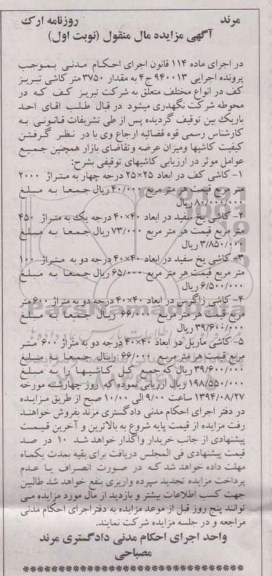 مرند روزنامه ارک
آگهی مزایده مال منقول (نوبت اول)
در اجرای ماده ۱۱۴ قانون اجرای احکام مدنی بموجب
پرونده اجرایی ۹۴۰۰۱۳ ج۴ به مقدار ۳۷۵۰ متر کاشی تبریز
کف در انواع مختلف متعلق به شرکت تبریز کف که در
محوطه شرکت نگهداری میشود در قبال طلب اقای احد
باریک بین توقیف گردیده پس از طی تشریفات قانونی به
کارشناس رسمی قوه قضائیه ارجاع وی با در نظر گرفتن
کیفیت کاشیها ومیزان عرضه وتقاضای بازار همچنین جمیع
عوامل موثر در ارزیابی کاشیهای توقیفی بشرح:
۱- کاشی کف در ابعاد ۲۵×۲۵ درجه چهار به متراژ ۲۰۰۰
متر مربع قیمت هر متر مربع ۴۰/۰۰۰ ریال جمعا به مبلغ
۸۰/۰۰۰/۰۰۰ ریال
۲- کاشی یخ سفید در ابعاد ۴۰×۴۰ درجه یک به متراژ ۴۵۰
متر مربع قیمت هر متر مربع ۷۳/۰۰۰ ریال جمعا به مبلغ
۳/۸۵۰/۰۰۰ ریال
۳- کاشی یخ سفید در ابعاد ۴۰×۴۰ درجه دو به متراژ ۱۰۰
متر مربع قیمت هر متر مربع ۶۵/۰۰۰ ریال جمعا به مبلغ
۶/۵۰۰/۰۰۰ ریال
۴- کاشی زاگرس در ابعاد ۴۰×۴۰ درجه دو به متراژ ۶۰۰ متر
مربع قیمت هر متر مربع ۶۶/۰۰۰ ریال جمعا به مبلغ
۳۹/۶۰۰/۰۰۰ ریال
۵- کاشی ماربل در ابعاد ۴۰×۴۰ درجه دو به متراژ ۶۰۰ متر
مربع قیمت هر متر مربع ۶۶/۰۰۰ ریال جمعا به مبلغ
۳۹/۶۰۰/۰۰۰ ریال که جمع کل کاشیها را به مبلغ
۱۹۸/۵۵۰/۰۰۰ ریال ارزیابی نموده که روز چهارشنبه مورخه
۱۳۹۴/۰۸/۲۷ ساعت ۹/۰۰ الی ۱۰/۰۰ صبح از طریق مزایده
در دفتر اجرای احکام مدنی دادگستری مرند بفروش خواهند
رفت مزایده از قیمت پایه شروع به بالاترین و آخرین قیمت
پیشنهادی از جانب خریدار واگذار خواهد شد ۱۰ در صد
قیمت پیشنهادی فی المجلس دریافت برای بقیه بمدت یکماه
مهلت داده خواهد شد که در صورت انصراف یا عدم
پرداخت مزایده تجدید سپرده واریزی بنفع خواهد شد طالبین
جهت کسب اطلاعات بیشتر و بازدید از مال مورد مزایده می
توانند پنج روز قبل از موعد مزایده به دفتر اجرای احکام مدنی
مراجعه و در جلسه مزایده شرکت نمایند.
واحد اجرای احکام مدنی دادگستری مرند
مصباحی